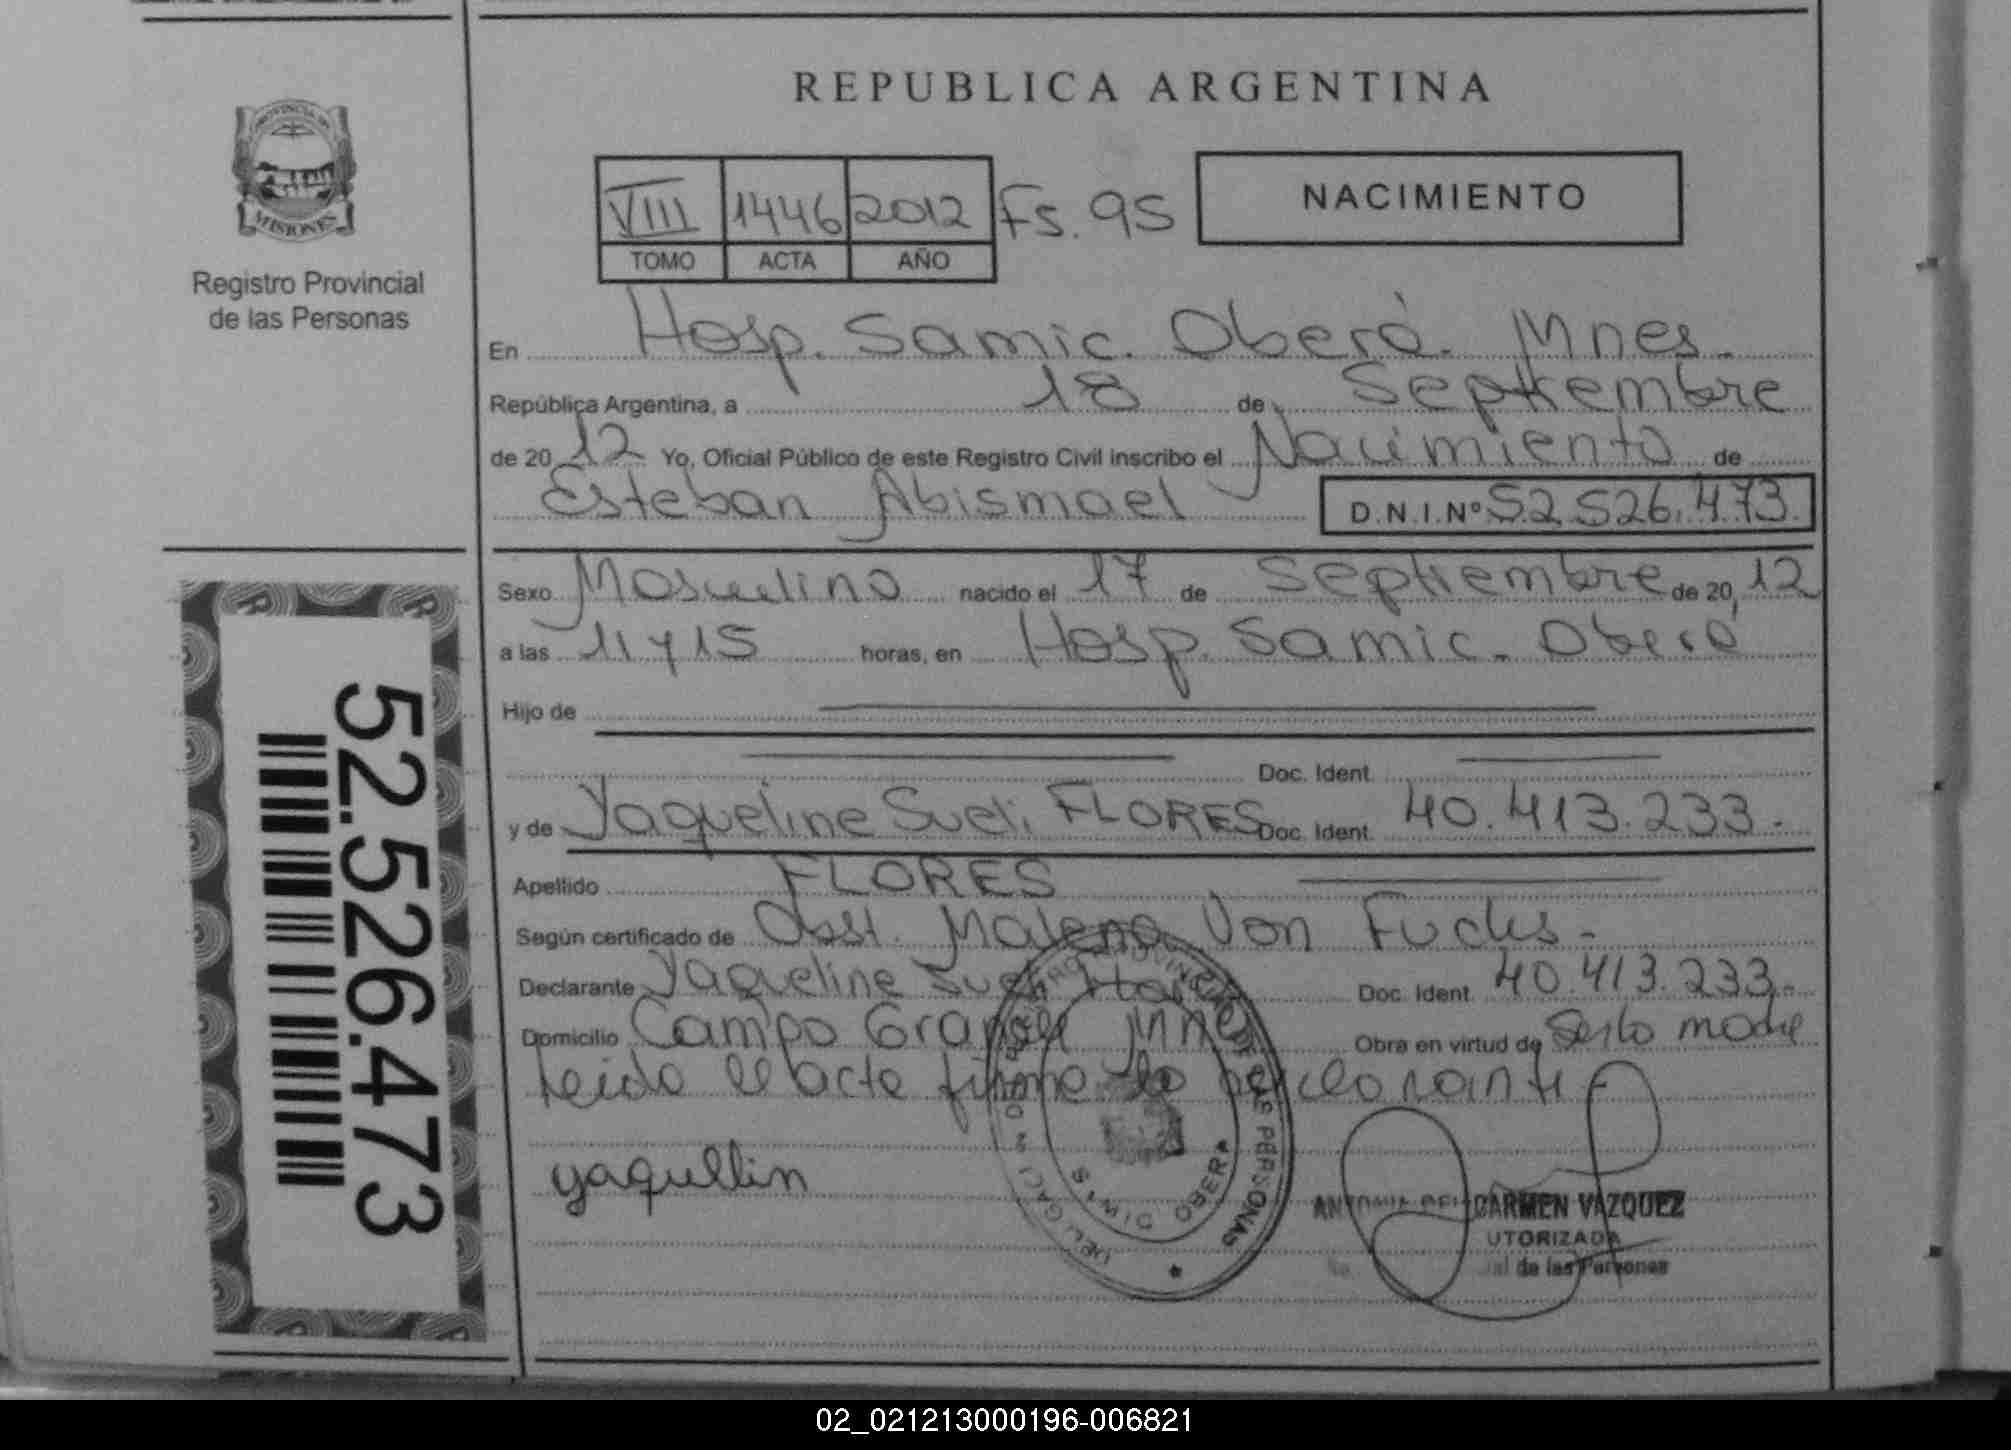 REPUBLICA ARGENTINA
PROVINCIA DE
MISIONES
Registro Provincial
de las Personas
VIII 1446 2012 Fs. 95
TOMO ACTA AÑO
NACIMIENTO
En Hosp. Samic. Oberá. Mnes.
República Argentina, a 18 de Septiembre
de 20 12 Yo, Oficial Público de este Registro Civil inscribo el Nacimiento de
Esteban Abismael D.N.I.Nº 52.526.473.
Sexo Masculino nacido el 17 de Septiembre de 20 12
a las 11 y 15 horas, en Hosp. Samic. Oberá
Hijo de
Doc. Ident.
y de Yaqueline Sueli FLORES Doc. Ident. 40.413.233.
Apellido FLORES
Según certificado de Obst. Malena Von Fuchs.
Declarante Yaqueline Sueli Doc. Ident. 40.413.233.
Domicilio Campo Grande Mnes Obra en virtud de
Leida el acta firma la declarante
yaquellin
ANTONIA DEL CARMEN VAZQUEZ
UTORIZADA
de las Personas
52.526.473
02_021213000196-006821